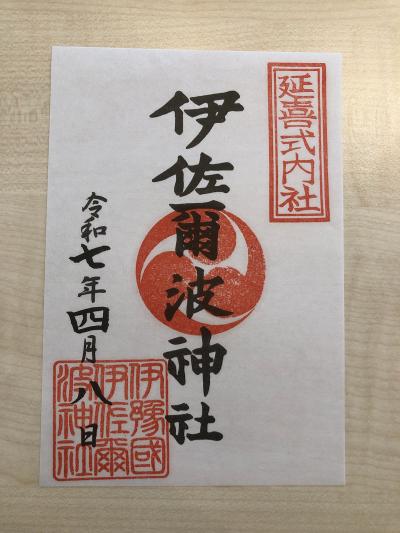 延喜式内社
伊佐爾波神社
令和七年四月八日
伊豫國
伊佐爾
波神社